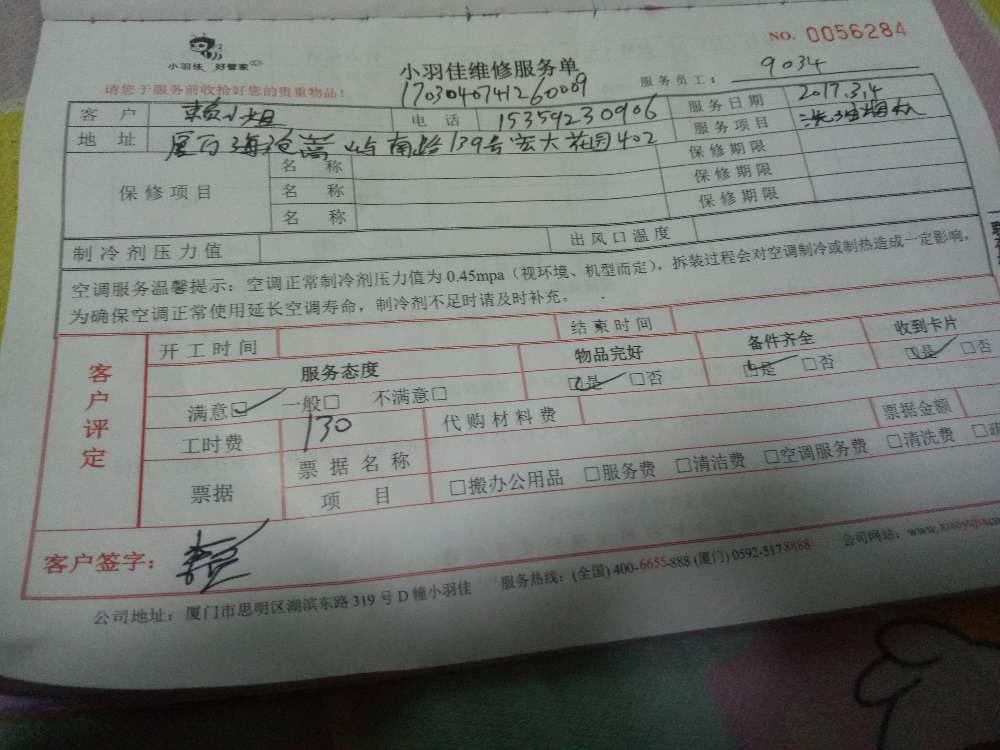 NO. 0056284
小羽佳 好管家
小羽佳维修服务单
请您于服务前收拾好您的贵重物品!
1703040741260009
服务员工: 9034
客户 赖小姐 电话 15359230906 服务日期 2017.3,4
地址 厦门海沧嵩屿南路139号宏大花园402 服务项目
保修项目 名称 保修期限
名称 保修期限
名称 保修期限
制冷剂压力值 出风口温度
空调服务温馨提示:空调正常制冷剂压力值为 0.45mpa(视环境、机型而定),拆装过程会对空调制冷或制热造成一定影响,
为确保空调正常使用延长空调寿命,制冷剂不足时请及时补充。
客户评定
开工时间 结束时间
服务态度 物品完好 备件齐全 收到卡片
满意☑ 一般□ 不满意□ ☑是 □否 ☑是 □否 ☑是 □否
工时费 130 代购材料费 票据金额
票据 票据名称
项目 □搬办公用品 □服务费 □清洁费 □空调服务费 □清洗费
客户签字:
公司地址:厦门市思明区湖滨东路 319 号 D 幢小羽佳 服务热线:(全国) 400-6655-888 (厦门) 0592-5178888 公司网站:www.xiaoyujia